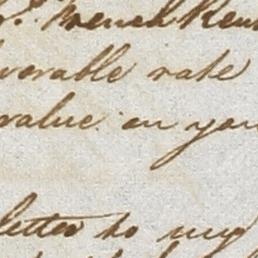 French Ren
vorable rate
value on you
letter to my